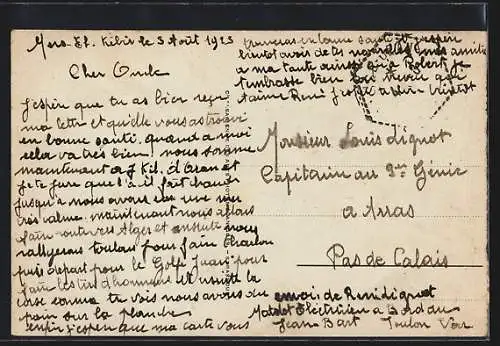 Mers-El-Kébir le 3 Août 1923
Cher Oncle
J'espère que tu as bien reçu
ma lettre et qu'elle vous a trouvé
en bonne santé. quand à moi
cela va très bien. nous somme
maintenant a 7 Kil. d'Oran et
je te jure que l'à il fait chaud
jusqu'a nous avons eu une mer
très calme. maintenant nous allons
faire route vers Alger et ensuite nous
rallierons toulon pour faire
puis départ pour le Golfe Juan pour
faire les tirs d'honneur et ensuite la
comme tu vois nous avons du
pain sur la planche
enfin j'espère que ma carte vous
trouveras en bonne santé et j'espère
bientot avoir de tes nouvelles. mes amitiés
a ma tante ainsi qu'a Robert je
t'embrasse bien fort neveu qui
t'aime René a bientot
Monsieur Louis Lignot
Capitaine au Génie
a Arras
Pas de Calais
envoi de René Lignot
Matelot Electricien a Bord du
Jean Bart Toulon Var